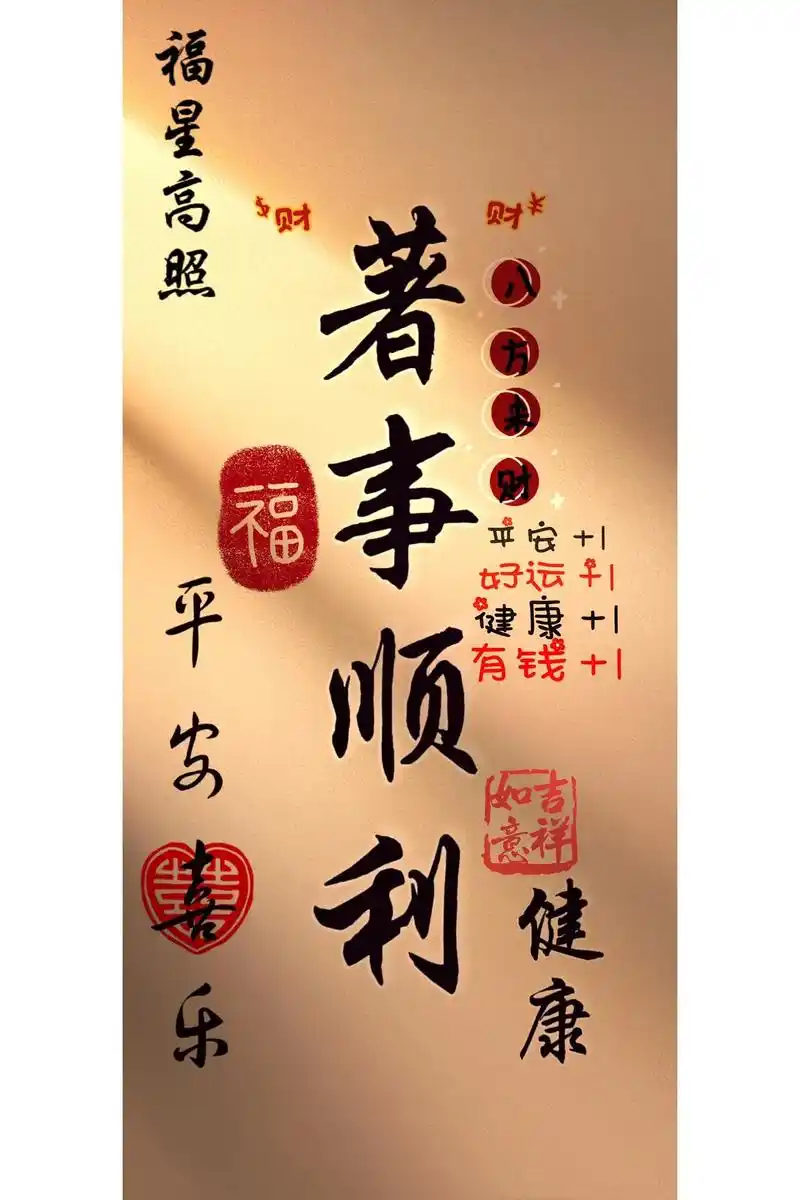 福星高照
财
财
著事顺利
八方来财
福
平安+1
好运+1
健康+1
有钱+1
平安喜乐
囍
吉祥如意
健康